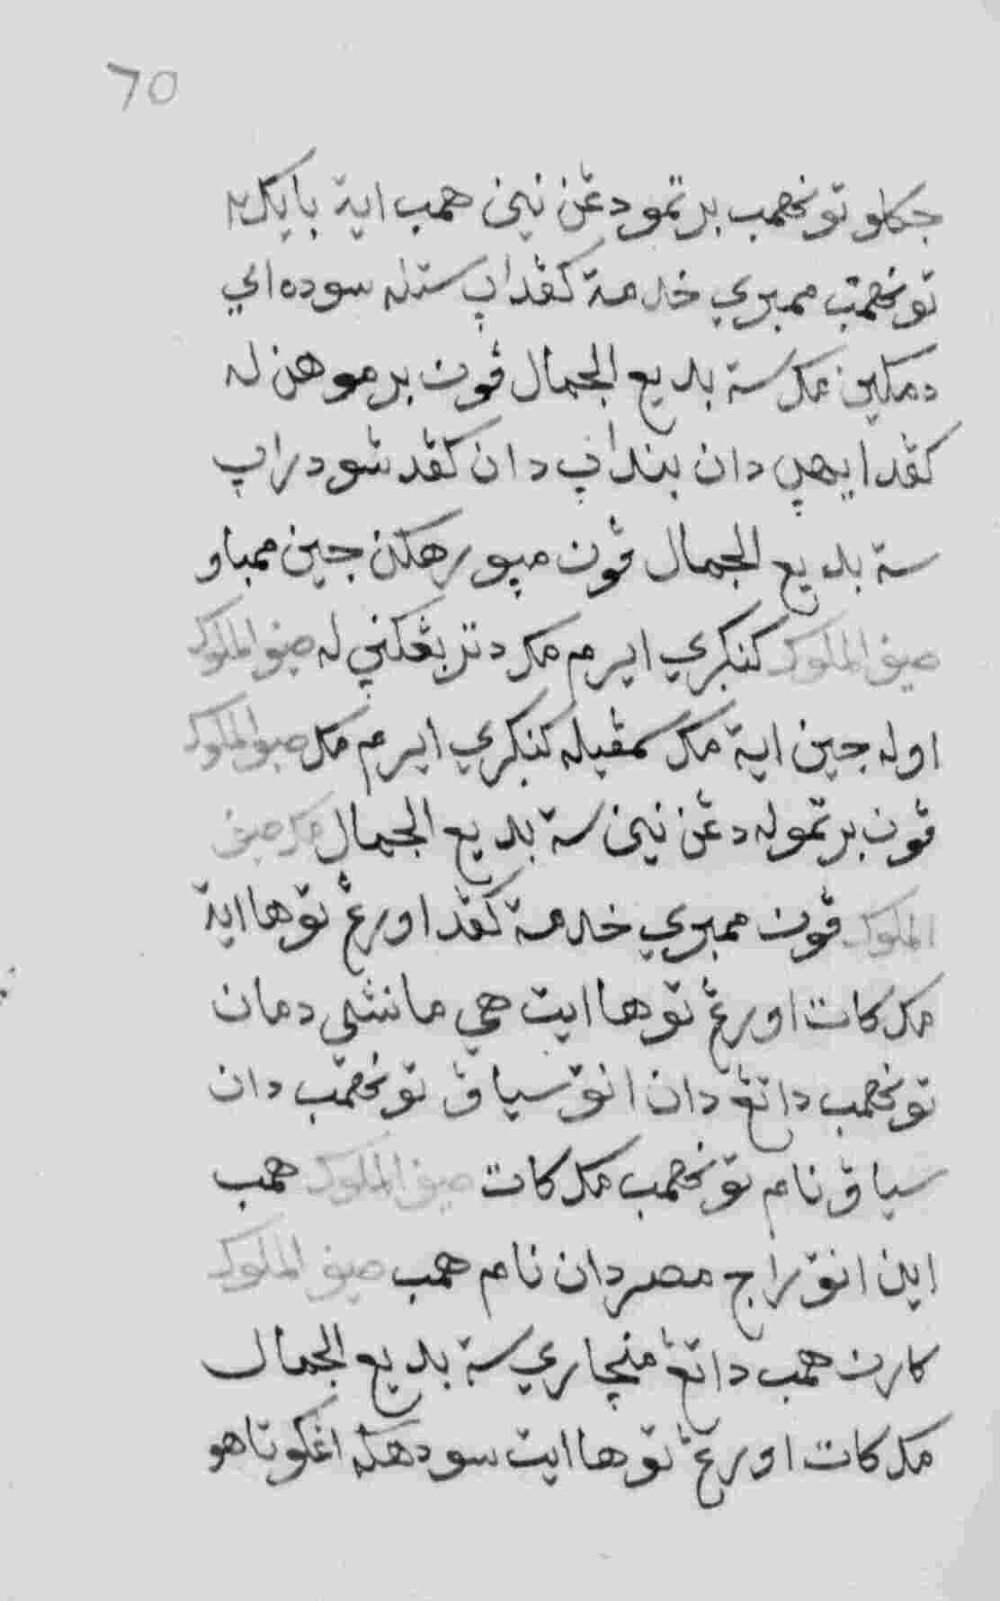 70
جكلو تونحمب برتمو دڠن نينى همب ايت بايكله
تونحمب ممبري خدمة كڤداڽ ستله سوده اي
دمكين مك ست بديع الجمال ڤون برموهن له
كڤد ايبوڽ دان بنداڽ دان كڤد سودراڽ
ست بديع الجمال ڤون مڽورهكن جين ممباو
صيف الملوك كنݢري ايرم مك دتربڠكنڽ له صيف الملوك
اوله جين ايت مك سمڤيله كنݢري ايرم مك صيف الملوك
ڤون برتموله دڠن نينى ست بديع الجمال مك صيف
الملوك ڤون ممبري خدمة كڤد اورڠ توها ايت
مك كات اورڠ توها ايت هي مانسي دمان
تونحمب داتڠ دان انق سياڤ تونحمب دان
سياڤ نام تونحمب مك كات صيف الملوك همب
اين انق راج مصر دان نام همب صيف الملوك
كارن همب داتڠ منچاري ست بديع الجمال
مك كات اورڠ توها ايت سودهكه اڠكو تاهو